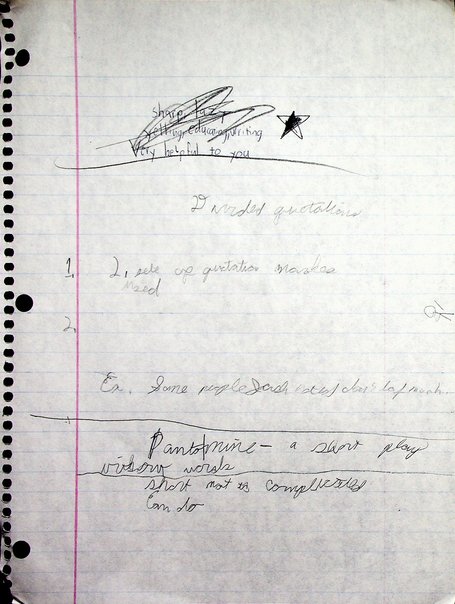 sharp, lazy
yelling, educating, writing
Very helpful to you
Divided quotations
1. 2, sets of quotation markes
used
2.
Ex. Some people
Pantomine - a short play
without words
short not to complicated
Can do